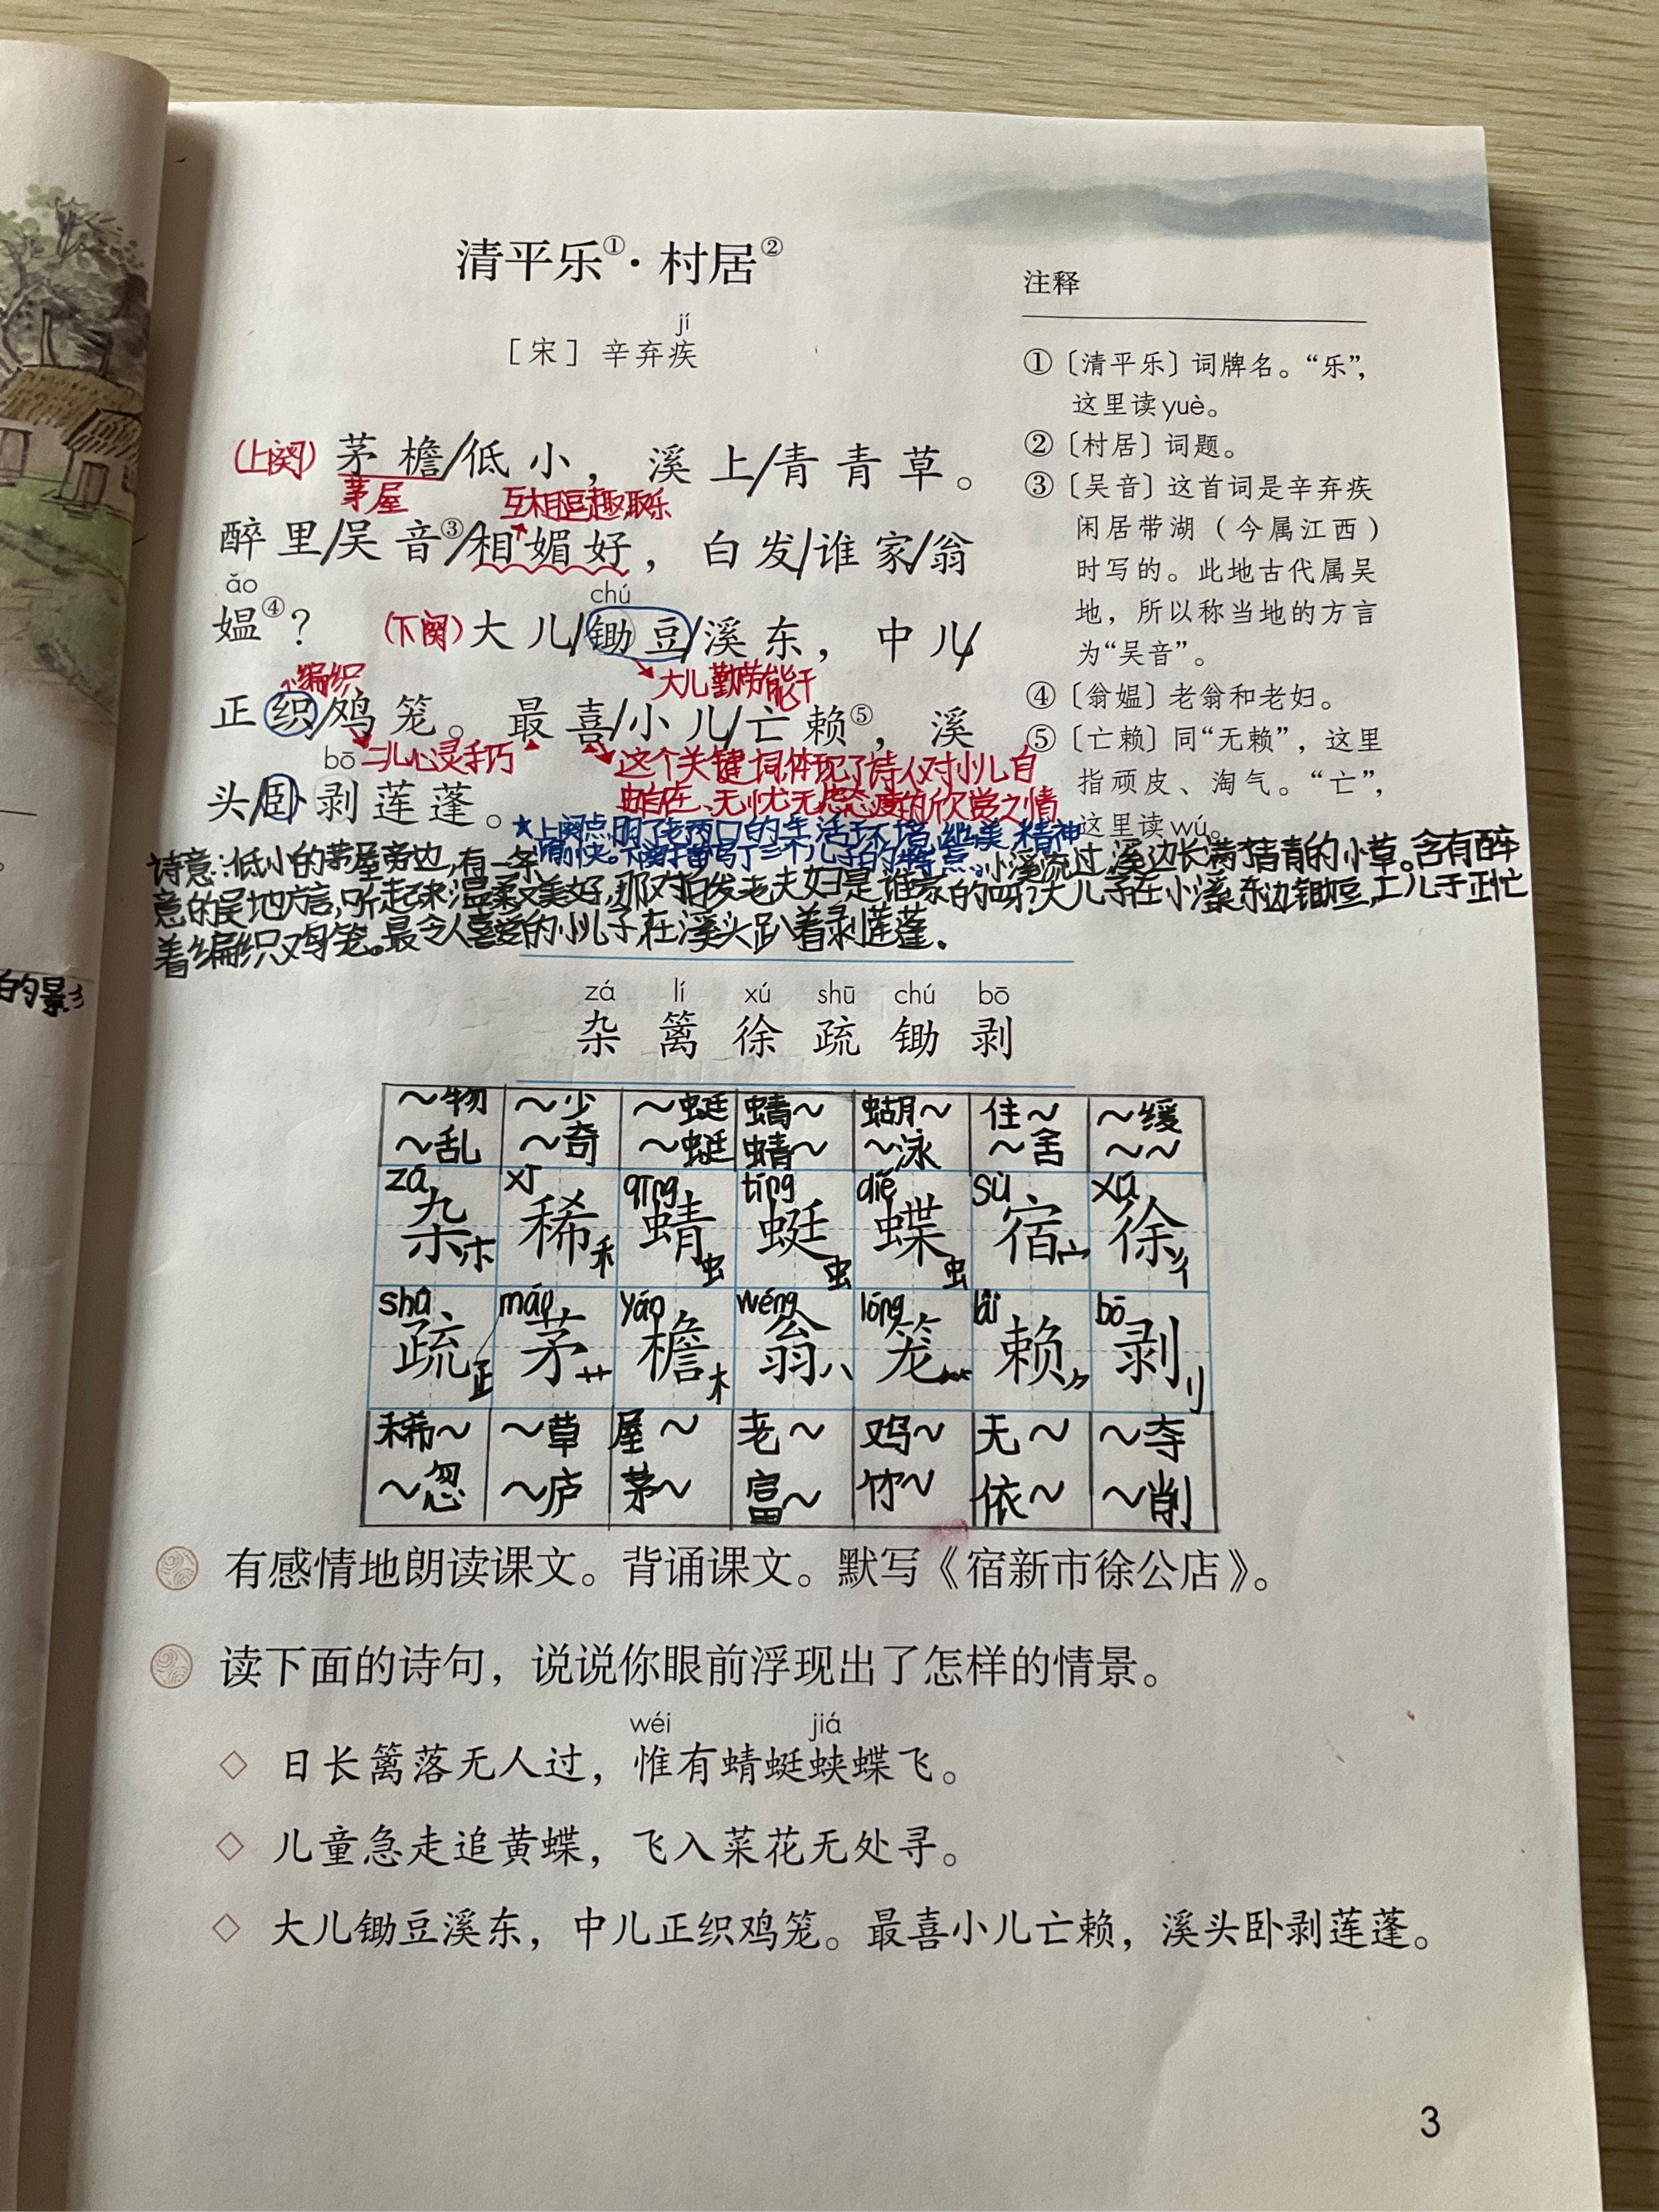 清平乐①·村居②
jí
［宋］ 辛弃疾
(上阕) 茅檐/低小，溪上/青青草。
茅屋
互相逗趣取乐
醉里/吴音③/相媚好，白发/谁家/翁
ǎo
chú
媪④？ (下阕) 大儿/锄豆/溪东，中儿/
编织
大儿勤劳能干
正织/鸡笼。最喜/小儿/亡赖⑤，溪
bō
二儿心灵手巧
这个关键词,体现了诗人对小儿自
由自在、无忧无虑态度的欣赏之情
头/卧剥莲蓬。
★上阕点明了老两口的生活环境优美,精神
愉快。下阕描写了三个儿子的特点。
诗意:低小的茅屋旁边,有一条小溪流过,溪边长满了青青的小草。含有醉
意的吴地方言,听起来温柔又美好,那对白发老夫妇是谁家的呀?大儿子在小溪东边锄豆,二儿子正忙
着编织鸡笼。最令人喜爱的小儿子,在溪头趴着剥莲蓬。
注释
①〔清平乐〕词牌名。“乐”，
这里读yuè。
②〔村居〕词题。
③〔吴音〕这首词是辛弃疾
闲居带湖（今属江西）
时写的。此地古代属吴
地，所以称当地的方言
为“吴音”。
④〔翁媪〕老翁和老妇。
⑤〔亡赖〕同“无赖”，这里
指顽皮、淘气。“亡”，
这里读wú。
的景
zá lí xú shū chú bō
杂 篱 徐 疏 锄 剥
～物 ～少 ～蜓 蜻～ 蝴～ 住～ ～缓
～乱 ～奇 ～蜓 蜻～ ～泳 ～舍 ～～
zá xī qīng tíng dié sù xú
杂 稀 蜻 蜓 蝶 宿 徐
木 禾 虫 虫 虫 宀 彳
shū máo yán wēng lóng lài bō
疏 茅 檐 翁 笼 赖 剥
艹 木 八 刂
稀～ ～草 屋～ 老～ 鸡～ 无～ ～夺
～忽 ～庐 茅～ 富～ 竹～ 依～ ～削
有感情地朗读课文。背诵课文。默写《宿新市徐公店》。
读下面的诗句，说说你眼前浮现出了怎样的情景。
wéi jiá
◇ 日长篱落无人过，惟有蜻蜓蛱蝶飞。
◇ 儿童急走追黄蝶，飞入菜花无处寻。
◇ 大儿锄豆溪东，中儿正织鸡笼。最喜小儿亡赖，溪头卧剥莲蓬。
3